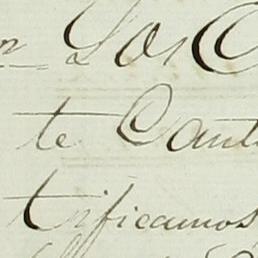 Los C
te Cant
tificamos